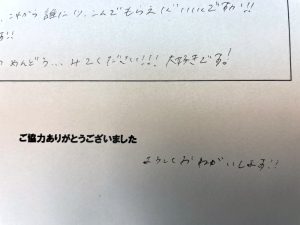 誰に
こんでもらえ
いいですか!!
めんどう…みてください!!! 大好きです!
ご協力ありがとうございました
よろしくおねがいします!!